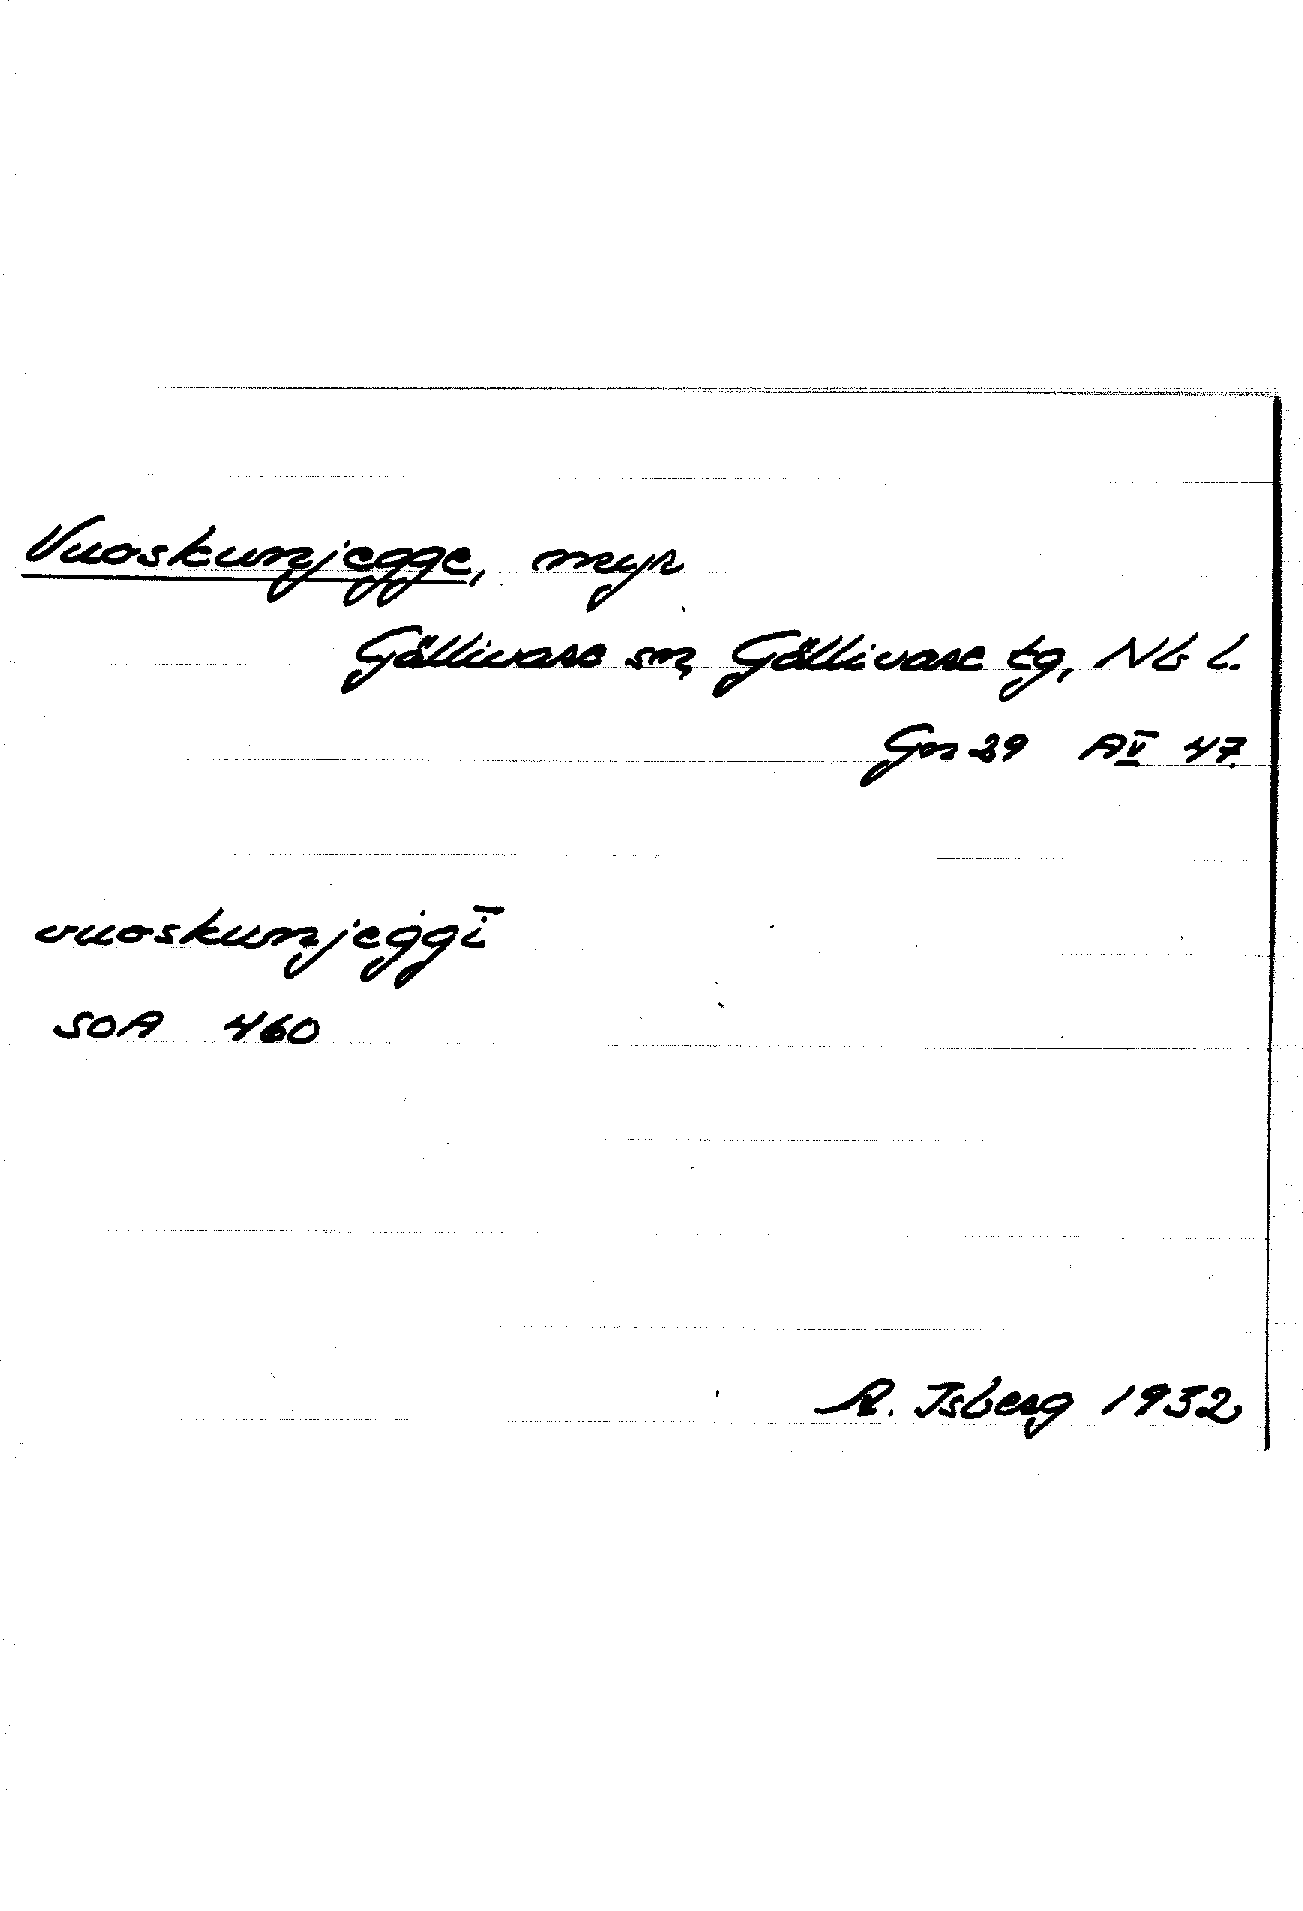 Vuoskunjegge, myr
Gällivare sn, Gällivare tg, Nb l.
Gn 29 AV 47.
vuoskunjeġġī
SOA 460
R. Isberg 1932